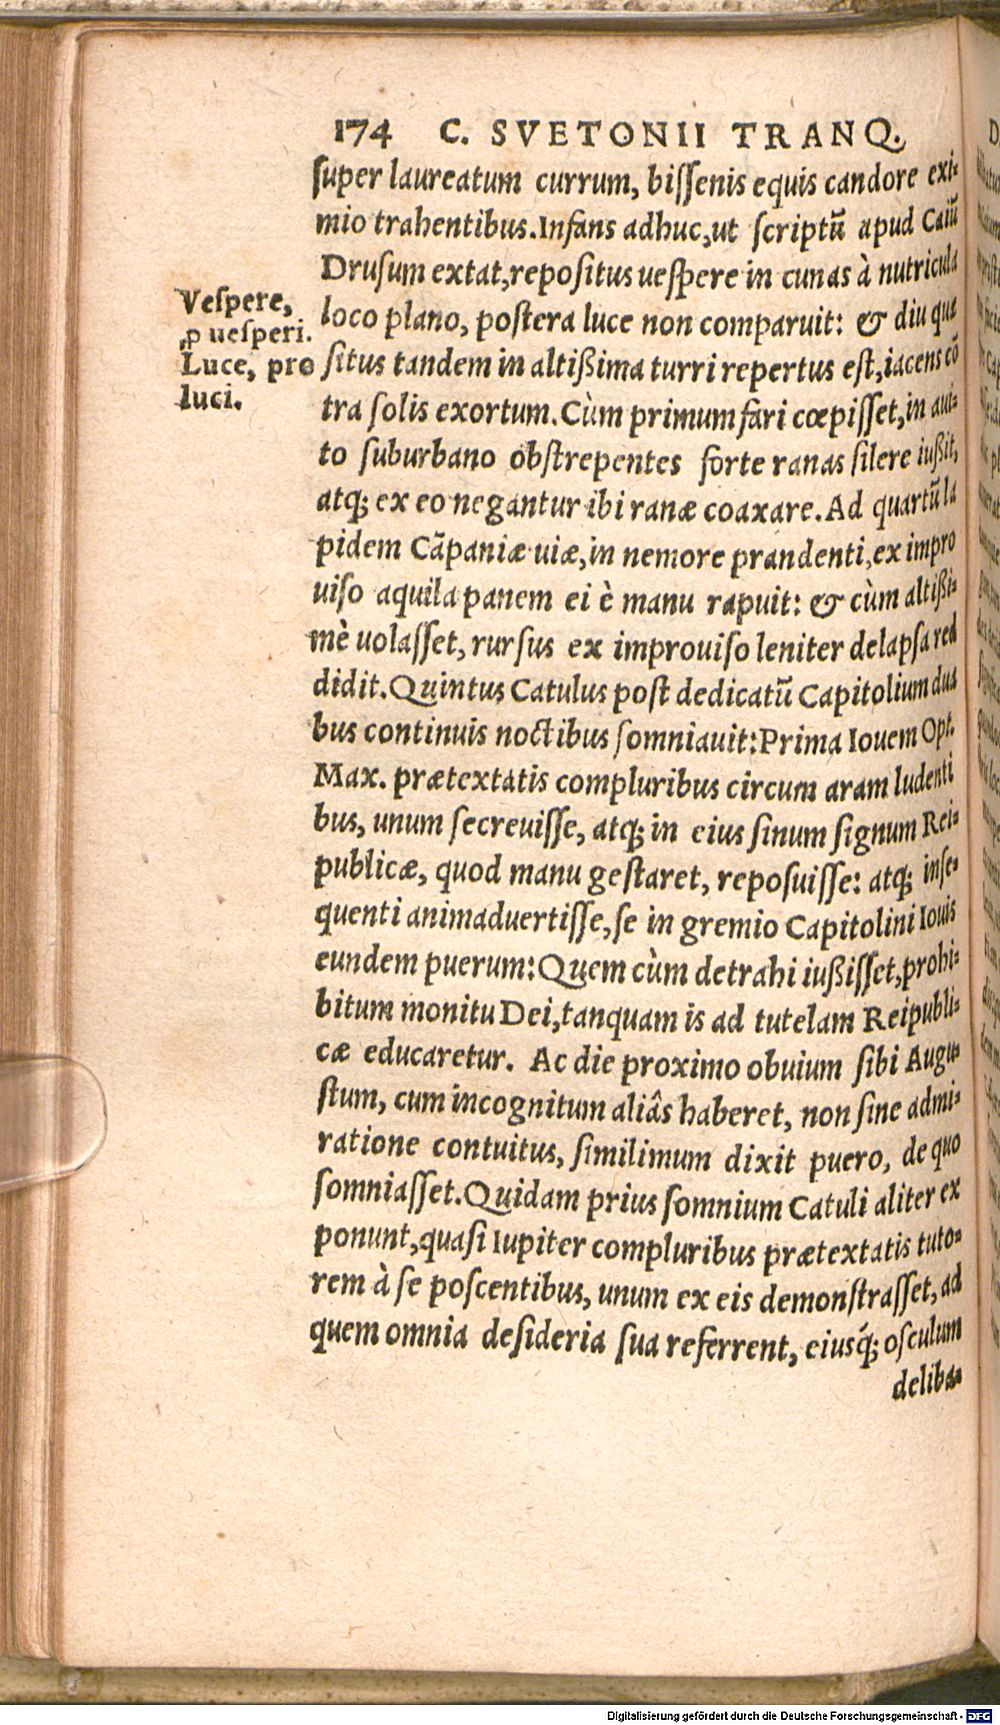 174 C. SVETONII TRANQ.
super laureatum currum, bissenis equis candore exi-
mio trahentibus. Infans adhuc, ut scriptū apud Caiū
Drusum extat, repositus uespere in cunas à nutricula
loco plano, postera luce non comparuit: & diu quæ
situs tandem in altißima turri repertus est, iacens cō
tra solis exortum. Cùm primum fari cœpisset, in aui-
to suburbano obstrepentes forte ranas silere iußit,
atq; ex eo negantur ibi ranæ coaxare. Ad quartū la
pidem Cāpaniæ uiæ, in nemore prandenti, ex impro
uiso aquila panem ei è manu rapuit: & cùm altißi-
mè uolasset, rursus ex improuiso leniter delapsa red
didit. Quintus Catulus post dedicatū Capitolium dua
bus continuis noctibus somniauit: Prima Iouem Opt.
Max. prætextatis compluribus circum aram ludenti
bus, unum secreuisse, atq; in eius sinum signum Rei-
publicæ, quod manu gestaret, reposuisse: atq; inse-
quenti animaduertisse, se in gremio Capitolini Iouis
eundem puerum: Quem cùm detrahi iußisset, prohi-
bitum monitu Dei, tanquam is ad tutelam Reipubli-
cæ educaretur. Ac die proximo obuium sibi Augu-
stum, cum incognitum aliâs haberet, non sine admi-
ratione contuitus, similimum dixit puero, de quo
somniasset. Quidam prius somnium Catuli aliter ex
ponunt, quasi Iupiter compluribus prætextatis tuto-
rem à se poscentibus, unum ex eis demonstrasset, ad
quem omnia desideria sua referrent, eiusq́; osculum
deliba-
Vespere,
ꝓ uesperi.
Luce, pro
luci.
Digitalisierung gefördert durch die Deutsche Forschungsgemeinschaft - DFG